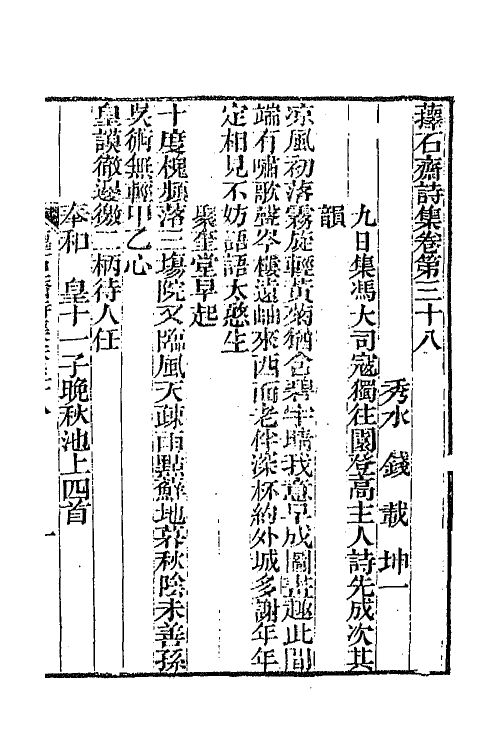 蘀石齋詩集卷第三十八
秀水 錢載 坤一
九日集馮大司寇獨往園登高主人詩先成次其
韻
涼風初落霧旋輕黃菊猶含碧宇晴我意早成圖畫趣此間
端有嘯歌聲岑樓遠岫來西面老伴深杯約外城多謝年年
定相見不妨語語太憨生
聚奎堂早起
十度槐頻落三塲院又臨風天疎雨點蘚地暮秋陰未善孫
吳術無輕甲乙心
皇談徹邊徼二柄待人任
奉和 皇十一子晚秋池上四首
一